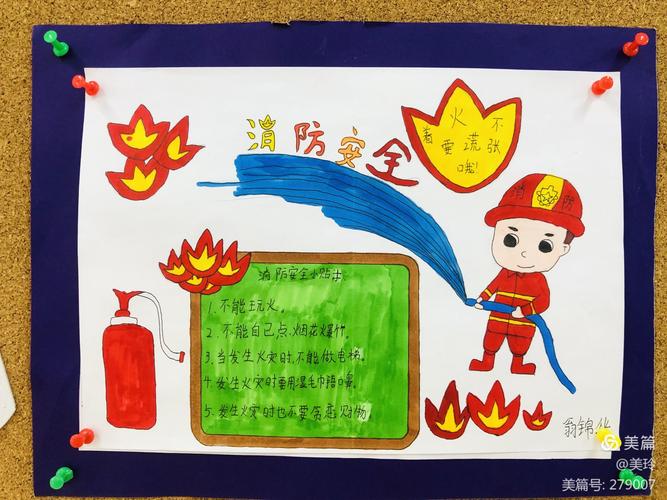 消防安全
着火不
要慌张
哦!
消防
消防安全小贴士
1.不能玩火。
2.不能自己点烟花爆竹。
3.当发生火灾时,不能做电梯。
4.发生火灾时要用湿毛巾捂口鼻。
5.发生火灾时也不要贪恋财物。
翁锦华
美篇
@美玲
美篇号: 279007